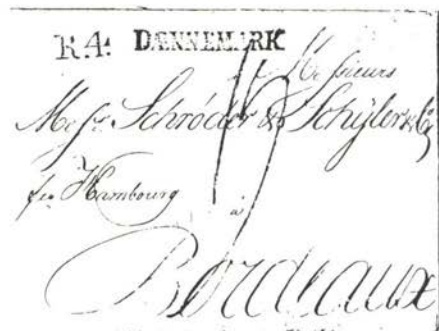 R.4: DÆNNEMARK
Messieurs
Mess.rs Schröder & Schÿler & Co
Hambourg
a
Bordeaux